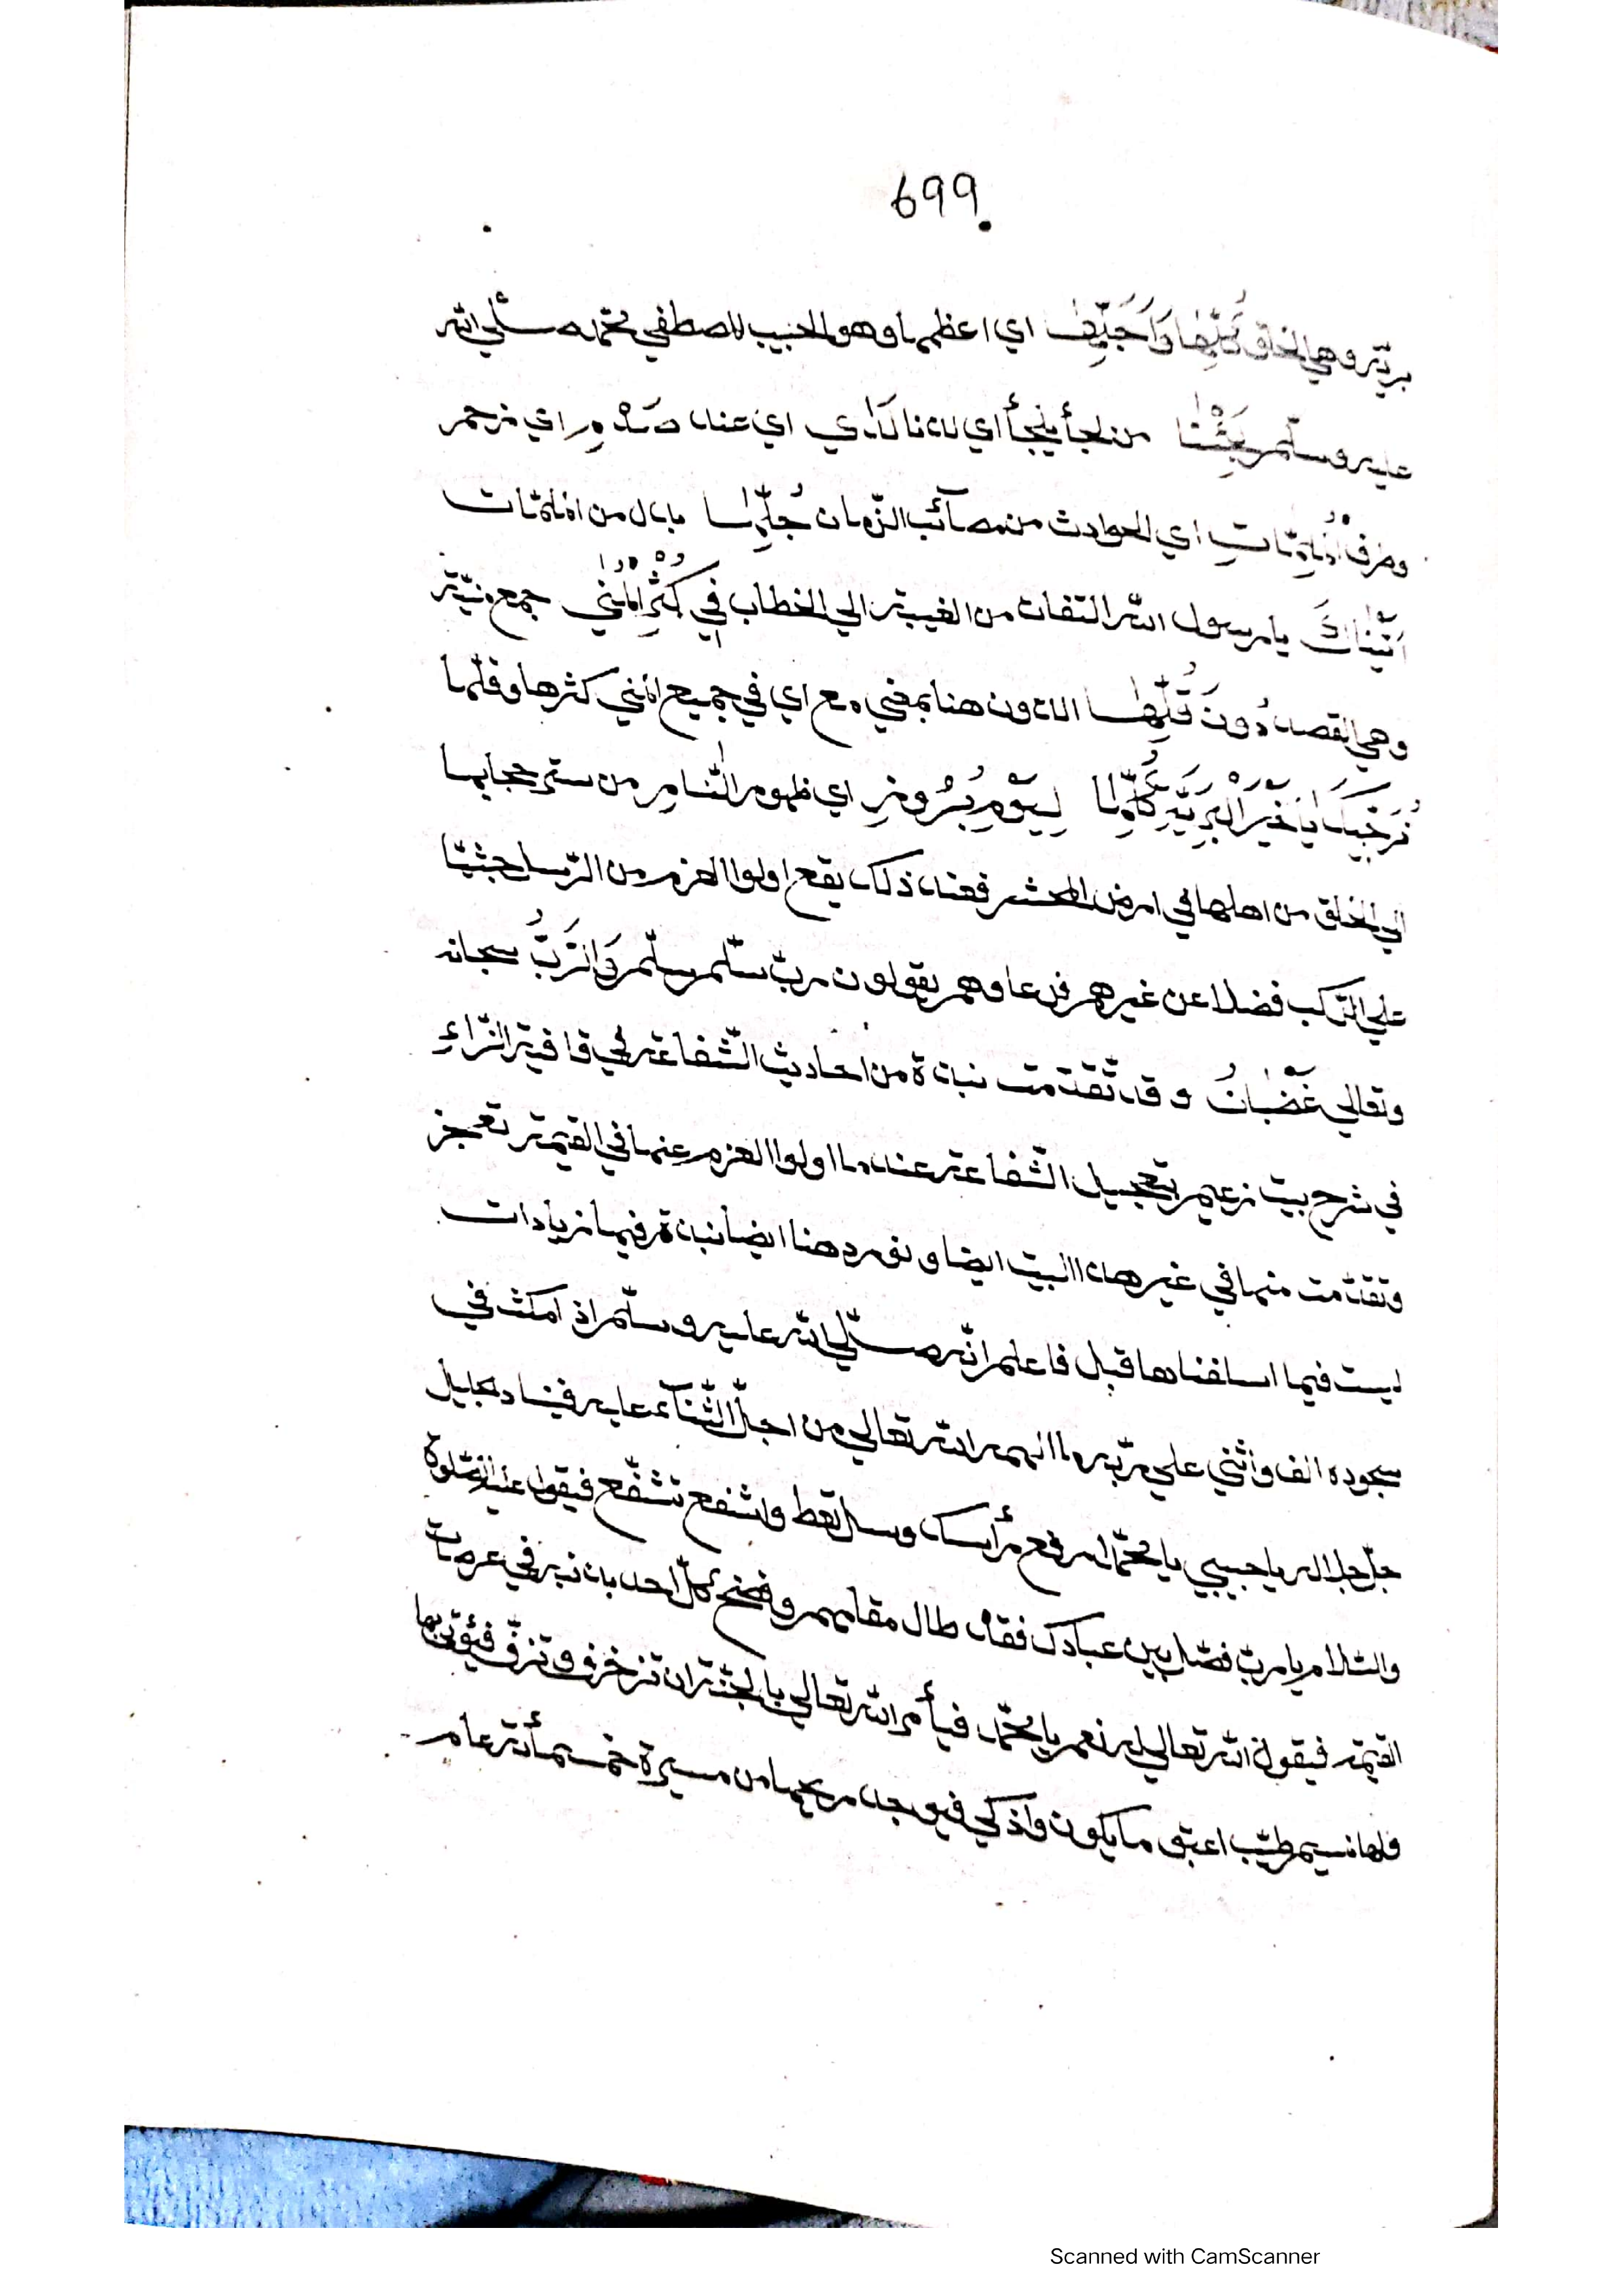 699
بريّة وهي الخلق كُلِّهَا وَأَجَلِّهَا اي اعظمها وهو الحبيب المصطفي محمّد صلّي الله
عليه وسلّم لَجَئْنَا من لجأ يلجأ اي لذنا لَدَي اي عند صَدْمِ اي مزحم
وصرف الْمُلِمَّاتِ اي الحوادث من مصآئب الزّمان جُلِّهَا بدل من الملمّات
اَتَيْنَاكَ يا رسول الله التفات من الغيبة الي الخطاب فِي كُثْرِ الْمُنٰي جمع منية
وهي القصد دُونَ قُلِّهَا الدون هنا بمعني مع اي في جميع المني كثرها وقلّها
نُرَجِّيكَ يَا خَيْرَ الْبَرِيَّةِ كُلِّهَا لِيَوْمِ بُرُوزِ اي ظهور النّار من ستر حجابها
الي الخلق من اهلها في ارض المحشر فعند ذلك يقع اولوا العزم من الرّسل جثيّا
علي الرّكب فضلا عن غيرهم فزعا وهم يقولون ربّ سلّم سلّم وَالرَّبُّ سبحانه
وتعالي غَضْبَانُ و قد تقدّمت نبذة من احاديث الشّفاعة في قافية الزّاء
في شرح بيت زعيم بتعجيل الشّفاعة عندما اولوا العزم عنها في القيمة تعجز
وتقدّمت منها في غير هذا البيت ايضا و نورد هنا ايضا نبذة فيها زيادات
ليست فيما اسلفناها قبل فاعلم انّه صلّي الله عليه وسلّم اذ امكث في
سجوده الف واثني علي ربّه ما الهمه الله تعالي من اجلّ الثّنآء عليه فيناديه الجليل
جلّ جلاله يا حبيبي يا محمّد ارفع رأسك وسل تعط واشفع تشفّع فيقول عليه الصّلوة
والسّلام يا ربّ فصل بين عبادك فقد طال مقامهم وفضح كلّ احد بذنبه في عرصات
القيمة فيقول الله تعالي له نعم يا محمّد فيأمر الله تعالي بالجنّة ان تزخرف وتزفّ فيؤتي بها
ولها نسيم طيّب اعبق ما يكون واذكي فيوجد ريحها من مسيرة خمسمأئة عام
Scanned with CamScanner